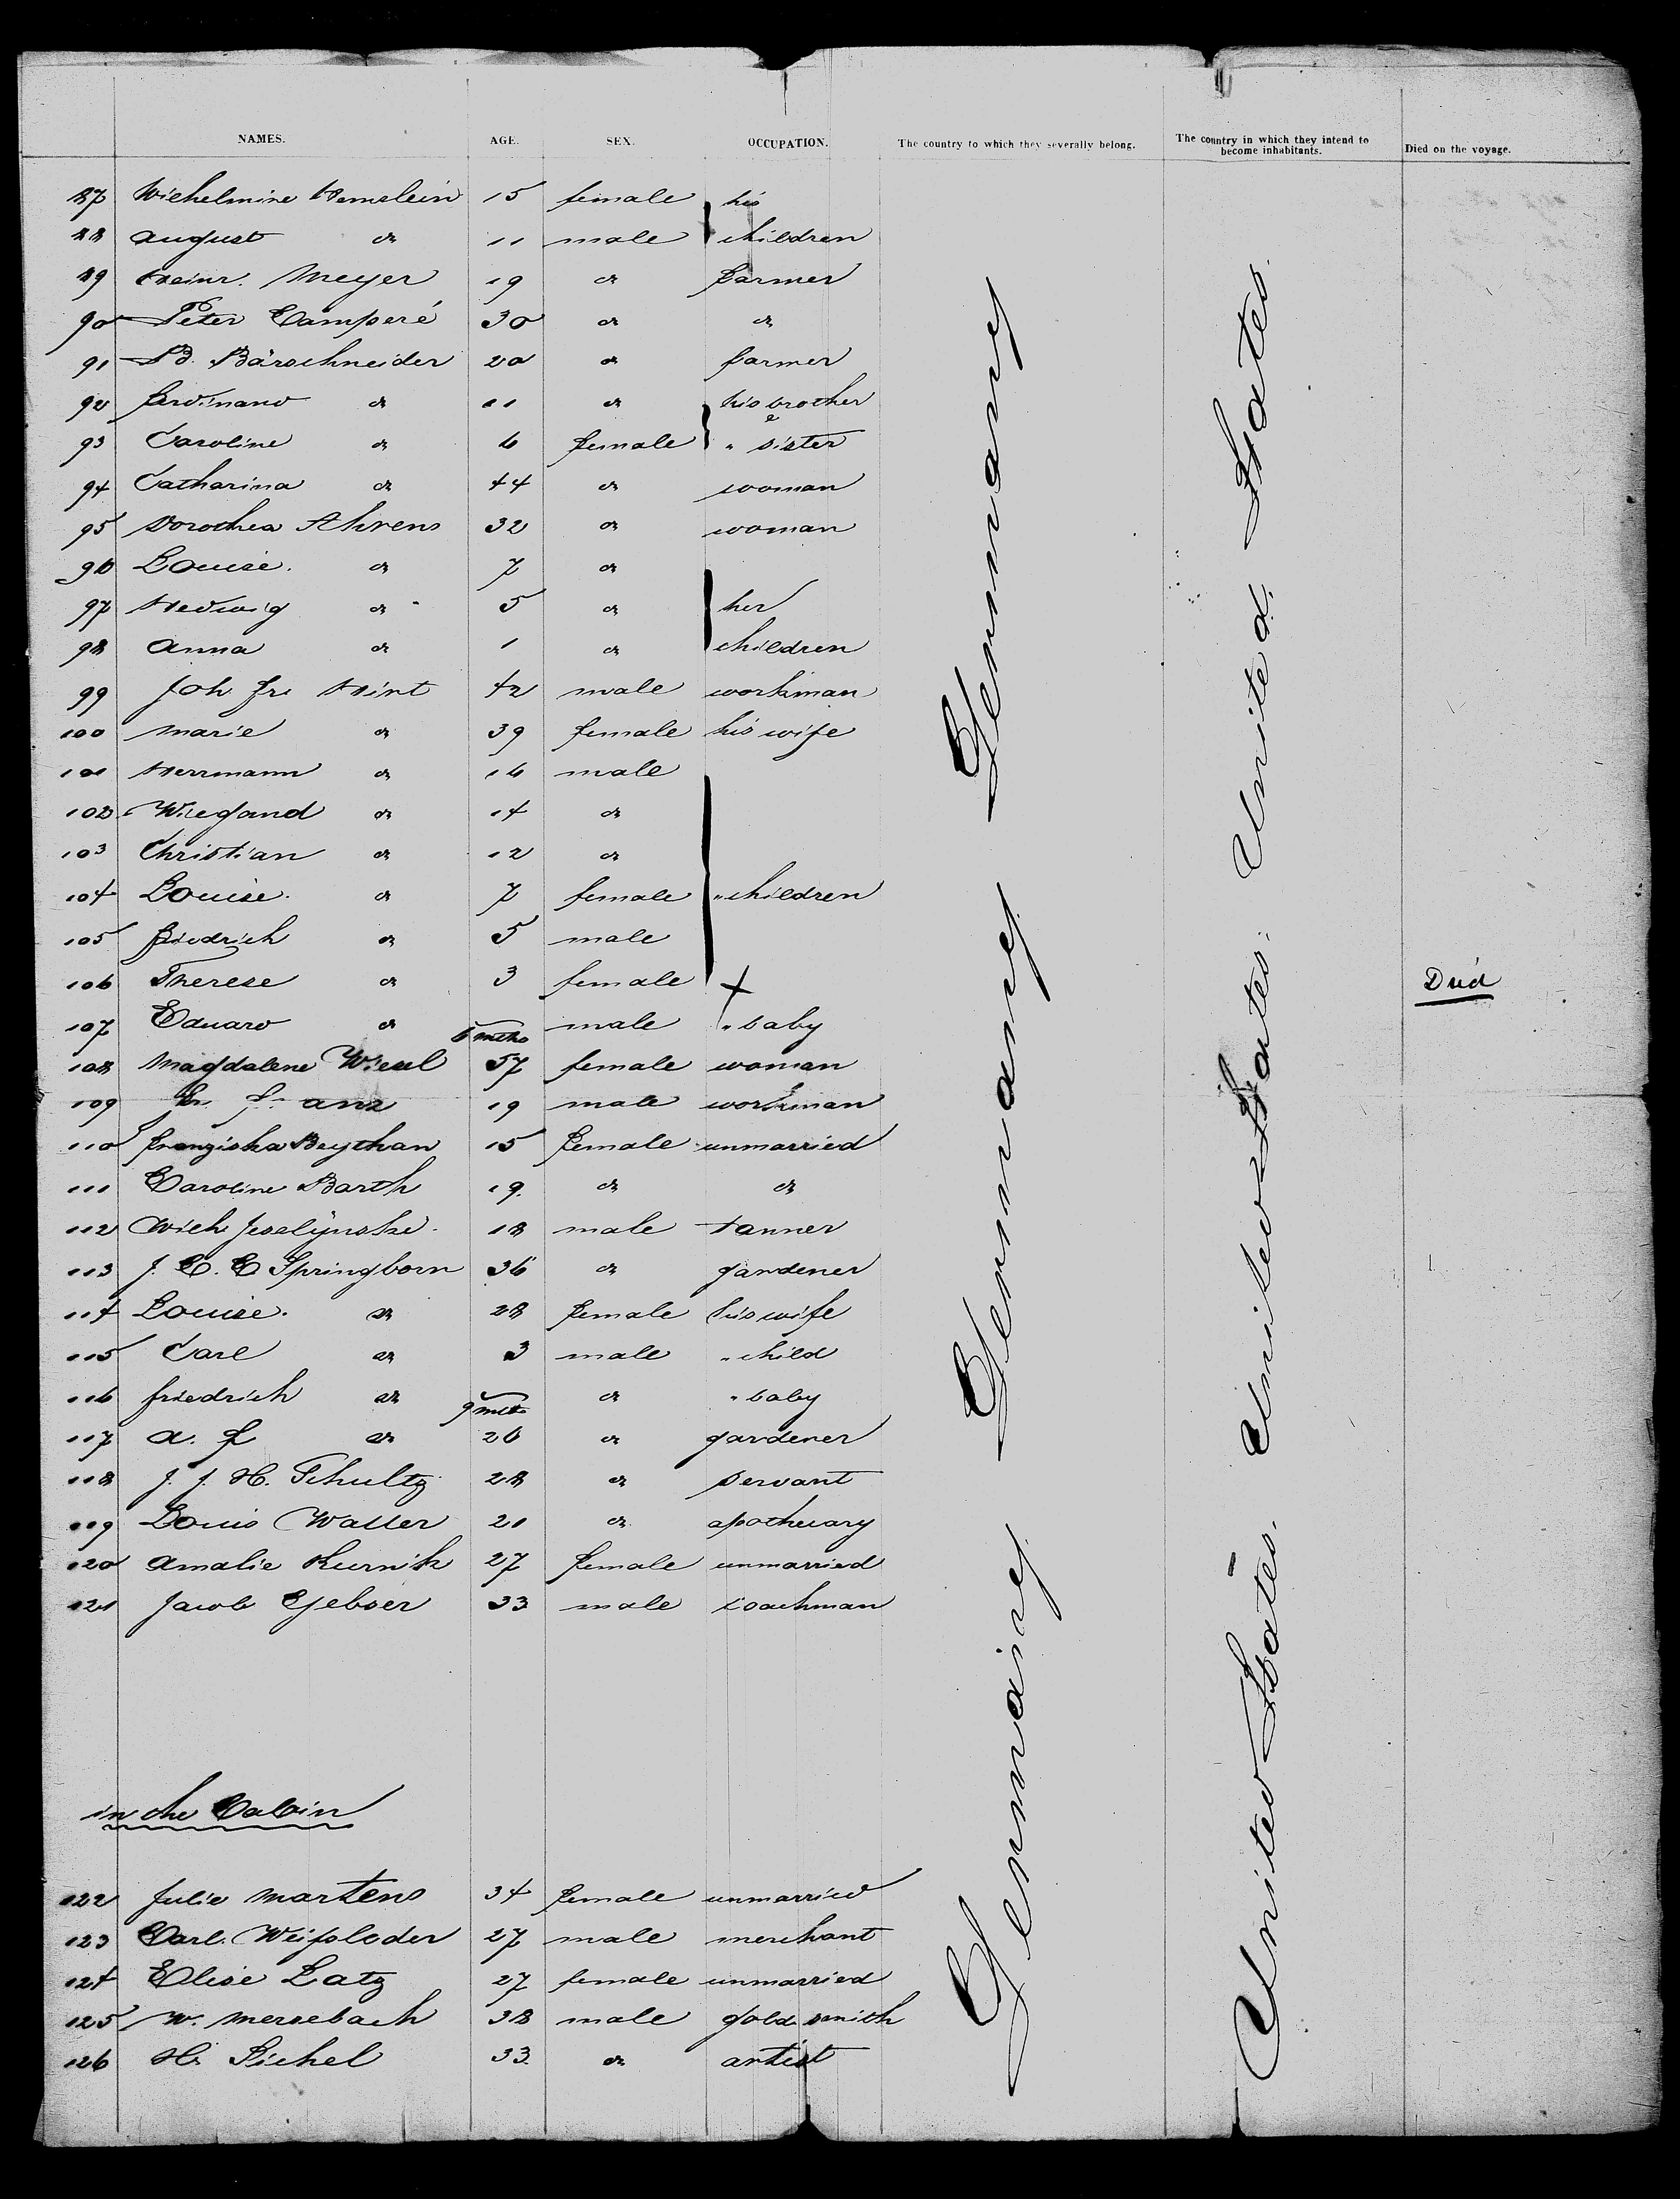 NAMES. AGE. SEX. OCCUPATION. The country to which they severally belong. The country in which they intend to become inhabitants. Died on the voyage.
87 Wilhelmine 15 female his
88 August do 11 male children
89 Heinr. Meyer 19 do farmer
90 Peter Camperé 30 do do
91 B. Bärschneider 20 do farmer
92 Ferdinand do 11 do his brother
93 Caroline do 6 female & " sister
94 Catharina do 44 do woman
95 Dorothea Ahrens 32 do woman
96 Louise. do 7 do
97 Hedwig do 5 do her
98 Anna do 1 do children
99 Joh Fr. Hint 42 male workman
100 Marie do 39 female his wife
101 Herrmann do 16 male
102 Wiegand do 14 do
103 Christian do 12 do
104 Louise. do 7 female " children
105 Friedrich do 5 male
106 Therese do 3 female X Died
107 Eduard do 6 mths male " baby
108 Magdalene Wiesel 57 female woman
109 19 male workman
110 Franziska Beythan 15 female unmarried
111 Caroline Barth 19. do do
112 Wilh 18 male tanner
113 J. C. C. Springborn 36 do gardener
114 Louise. do 28 female his wife
115 Carl do 3 male " child
116 Friedrich do 9 mths do " baby
117 A. F do 26 do gardener
118 J. J. H. Schultz 28 do servant
119 Louis Walter 21 do apothecary
120 Amalie Kurnik 27 female unmarried
121 Jacob 33 male coachman
in the Cabin
122 Julie Martens 34 female unmarried
123 Carl. 27 male merchant
124 Elise Latz 27 female unmarried
125 W. Mersebach 38 male goldsmith
126 H. Sichel 33. do artist
Germany Germany Germany
United States. United States. United States.